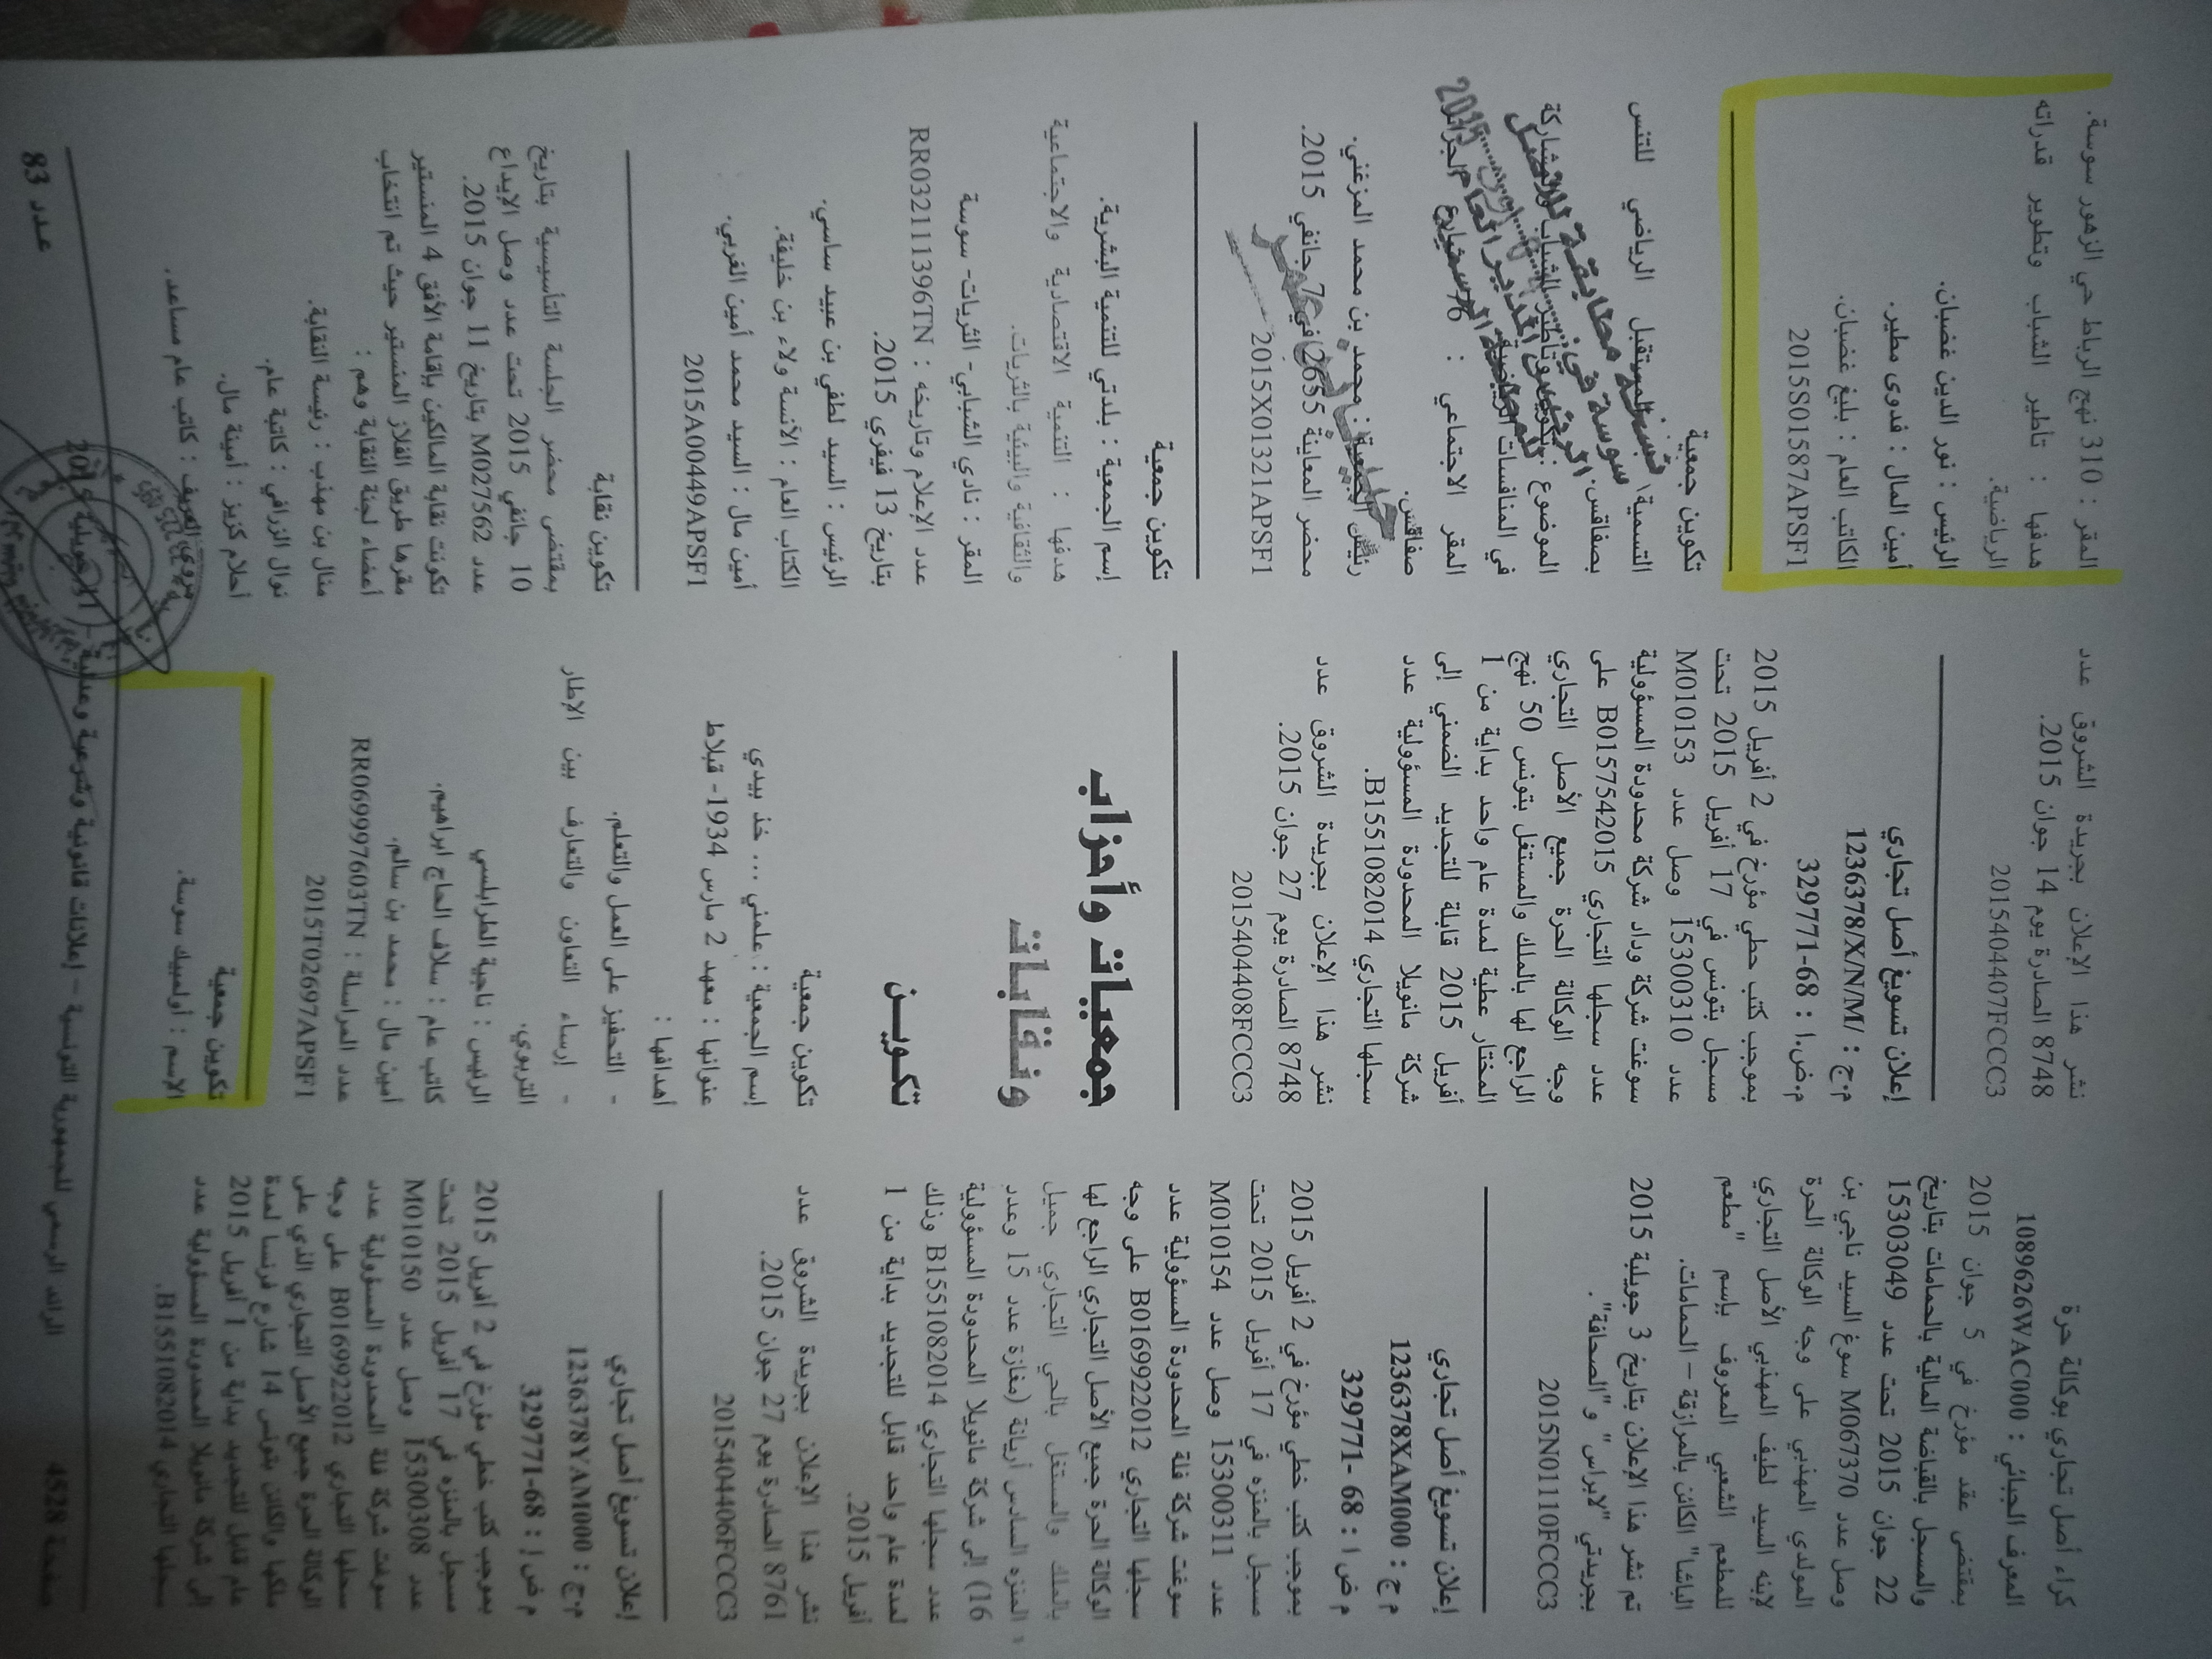 كراء أصل تجاري بوكالة حرة
المعرف الجبائي : 1089626WAC000
بمقتضى عقد مؤرخ في 5 جوان 2015
والمسجل بالقباضة المالية بالحمامات بتاريخ
22 جوان 2015 تحت عدد 15303049
وصل عدد M067370 سوغ السيد ناجي بن
المولدي المهذبي على وجه الوكالة الحرة
لابنه السيد لطيف المهذبي الأصل التجاري
للمطعم الشعبي المعروف بإسم "مطعم
الباشا" الكائن بالمرازقة – الحمامات.
تم نشر هذا الإعلان بتاريخ 3 جويلية 2015
بجريدتي "لابراس" و"الصحافة".
2015N01110FCCC3
إعلان تسويغ أصل تجاري
م ج : 1236378XAM000
م ض ا : 68 -329771
بموجب كتب خطي مؤرخ في 2 أفريل 2015
مسجل بالمنزه في 17 أفريل 2015 تحت
عدد 15300311 وصل عدد M010154
سوغت شركة فلة المحدودة المسؤولية عدد
سجلها التجاري B016992012 على وجه
الوكالة الحرة جميع الأصل التجاري الراجع لها
بالملك والمستغل بالحي التجاري جميل
المنزه السادس أريانة (مغازة عدد 15 وعدد
16) إلى شركة مانويلا المحدودة المسؤولية
عدد سجلها التجاري B155108​2014 وذلك
لمدة عام واحد قابل للتجديد بداية من 1
أفريل 2015.
نشر هذا الإعلان بجريدة الشروق عدد
8761 الصادرة يوم 27 جوان 2015.
2015404406FCCC3
إعلان تسويغ أصل تجاري
م.ج : 1236378YAM000
م ض ا : 68-329771
بموجب كتب خطي مؤرخ في 2 أفريل 2015
مسجل بالمنزه في 17 أفريل 2015 تحت
عدد 15300308 وصل عدد M010150
سوغت شركة فلة المحدودة المسؤولية عدد
سجلها التجاري B016992012 على وجه
الوكالة الحرة جميع الأصل التجاري الذي على
ملكها والكائن بتونس 14 شارع فرنسا لمدة
عام قابل للتجديد بداية من 1 أفريل 2015
إلى شركة مانويلا المحدودة المسؤولية عدد
سجلها التجاري B1551082014.
نشر هذا الإعلان بجريدة الشروق عدد
8748 الصادرة يوم 14 جوان 2015.
2015404407FCCC3
إعلان تسويغ أصل تجاري
م.ج : 1236378/X/N/M/
م.ض.ا : 68-329771
بموجب كتب خطي مؤرخ في 2 أفريل 2015
مسجل بتونس في 17 أفريل 2015 تحت
عدد 15300310 وصل عدد M010153
سوغت شركة وداد شركة محدودة المسؤولية
عدد سجلها التجاري B0157542015 على
وجه الوكالة الحرة جميع الأصل التجاري
الراجع لها بالملك والمستغل بتونس 50 نهج
المختار عطية لمدة عام واحد بداية من 1
أفريل 2015 قابلة للتجديد الضمني إلى
شركة مانويلا المحدودة المسؤولية عدد
سجلها التجاري B1551082014.
نشر هذا الإعلان بجريدة الشروق عدد
8748 الصادرة يوم 27 جوان 2015.
2015404408FCCC3
جمعيات وأحزاب
ونقابات
تكوين
تكوين جمعية
إسم الجمعية : علمني ... خذ بيدي
عنوانها : معهد 2 مارس 1934- قبلاط
أهدافها :
- التحفيز على العمل والتعلم.
- إرساء التعاون والتعارف بين الإطار
التربوي.
الرئيس : ناجية الطرابلسي
كاتب عام : سلاف الحاج ابراهيم.
أمين مال : محمد بن سالم.
عدد المراسلة : RR069997603TN
2015T02697APSF1
تكوين جمعية
الإسم : أولمبيك سوسة.
المقر : 310 نهج الرباط حي الزهور سوسة.
هدفها : تأطير الشباب وتطوير قدراته
الرياضية.
الرئيس : نور الدين غضبان.
أمين المال : فدوى مطير.
الكاتب العام : بليغ غضبان.
2015S01587APSF1
تكوين جمعية
التسمية : المستقبل الرياضي للتنس
بصفاقس.
الموضوع : تكوين وتأطير الشباب والمشاركة
في المنافسات الرياضية
المقر الاجتماعي :
صفاقس.
رئيس الجمعية : محمد بن محمد المزغني.
محضر المعاينة 2655 في 7 جانفي 2015.
2015X01321APSF1
نسخة مطابقة للأصل
سوسة في
تكوين جمعية
إسم الجمعية : بلدتي للتنمية البشرية.
هدفها : التنمية الاقتصادية والاجتماعية
والثقافية والبيئية بالثريات.
المقر : نادي الشبابي- الثريات- سوسة
عدد الإعلام وتاريخه : RR032111396TN
بتاريخ 13 فيفري 2015.
الرئيس : السيد لطفي بن عبيد ساسي.
الكتاب العام : الآنسة ولاء بن خليفة.
أمين مال : السيد محمد أمين الغربي.
2015A00449APSF1
تكوين نقابة
بمقتضى محضر الجلسة التأسيسية بتاريخ
10 جانفي 2015 تحت عدد وصل الإيداع
عدد M027562 بتاريخ 11 جوان 2015.
تكونت نقابة المالكين بإقامة الأفق 4 المنستير
مقرها طريق الفلاز المنستير حيث تم انتخاب
أعضاء لجنة النقابة وهم :
منال بن مهذب : رئيسة النقابة.
نوال الزرافي : كاتبة عام.
أحلام كزيز : أمينة مال.
كاتب عام مساعد.
صفحة 4528
الرائد الرسمي للجمهورية التونسية – إعلانات قانونية وشرعية وعدلية
عدد 83